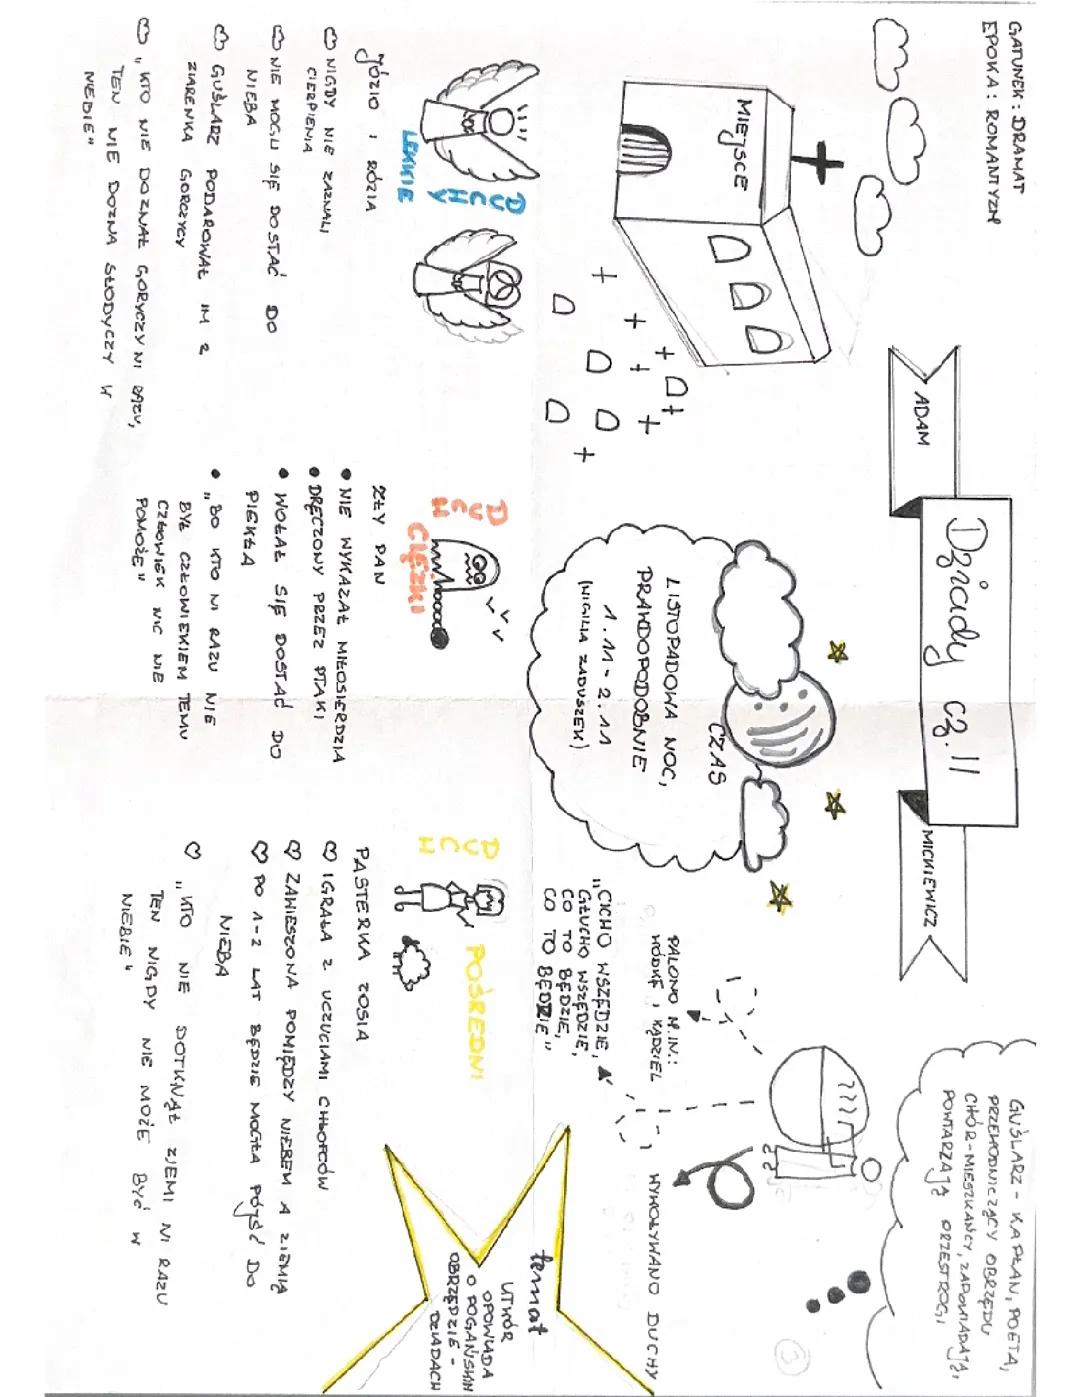 GATUNEK: DRAMAT
EPOKA: ROMANTYZM
ADAM
Dziady cz. II
MICKIEWICZ
GUŚLARZ - KAPŁAN, POETA,
PRZEWODNICZĄCY OBRZĘDU
CHÓR-MIESZKAŃCY, ZAPOWIADAJĄ,
POWTARZAJĄ PRZESTROGI
MIEJSCE
CZAS
LISTOPADOWA NOC,
PRAWDOPODOBNIE
1.11-2.11
(WIGILIA ZADUSZEK)
PALONO M.IN.:
WÓDKĘ, KĄDZIEL
"CICHO WSZĘDZIE,
GŁUCHO WSZĘDZIE,
CO TO BĘDZIE,
CO TO BĘDZIE"
WYWOŁYWANO DUCHY
temat
UTWÓR
OPOWIADA
O POGAŃSKIM
OBRZĘDZIE -
DZIADACH
DUCHY
LEKKIE
JÓZIO I RÓZIA
NIGDY NIE ZAZNALI
CIERPIENIA
NIE MOGLI SIĘ DOSTAĆ DO
NIEBA
GUŚLARZ PODAROWAŁ IM 2
ZIARENKA GORCZYCY
"KTO NIE DOZNAŁ GORYCZY NI RAZU,
TEN NIE DOZNA SŁODYCZY W
NIEBIE"
DUCH
CIĘŻKI
ZŁY PAN
• NIE WYKAZAŁ MIŁOSIERDZIA
• DRĘCZONY PRZEZ PTAKI
• WOŁAŁ SIĘ DOSTAĆ DO
PIEKŁA
• "BO KTO NI RAZU NIE
BYŁ CZŁOWIEKIEM TEMU
CZŁOWIEK NIC NIE
POMOŻE"
DUCH
POŚREDNI
PASTERKA ZOSIA
IGRAŁA Z UCZUCIAMI CHŁOPCÓW
ZAWIESZONA POMIĘDZY NIEBEM A ZIEMIĄ
PO 1-2 LAT BĘDZIE MOGŁA PÓJŚĆ DO
NIEBA
"KTO NIE DOTKNĄŁ ZIEMI NI RAZU
TEN NIGDY NIE MOŻE BYĆ W
NIEBIE"
3